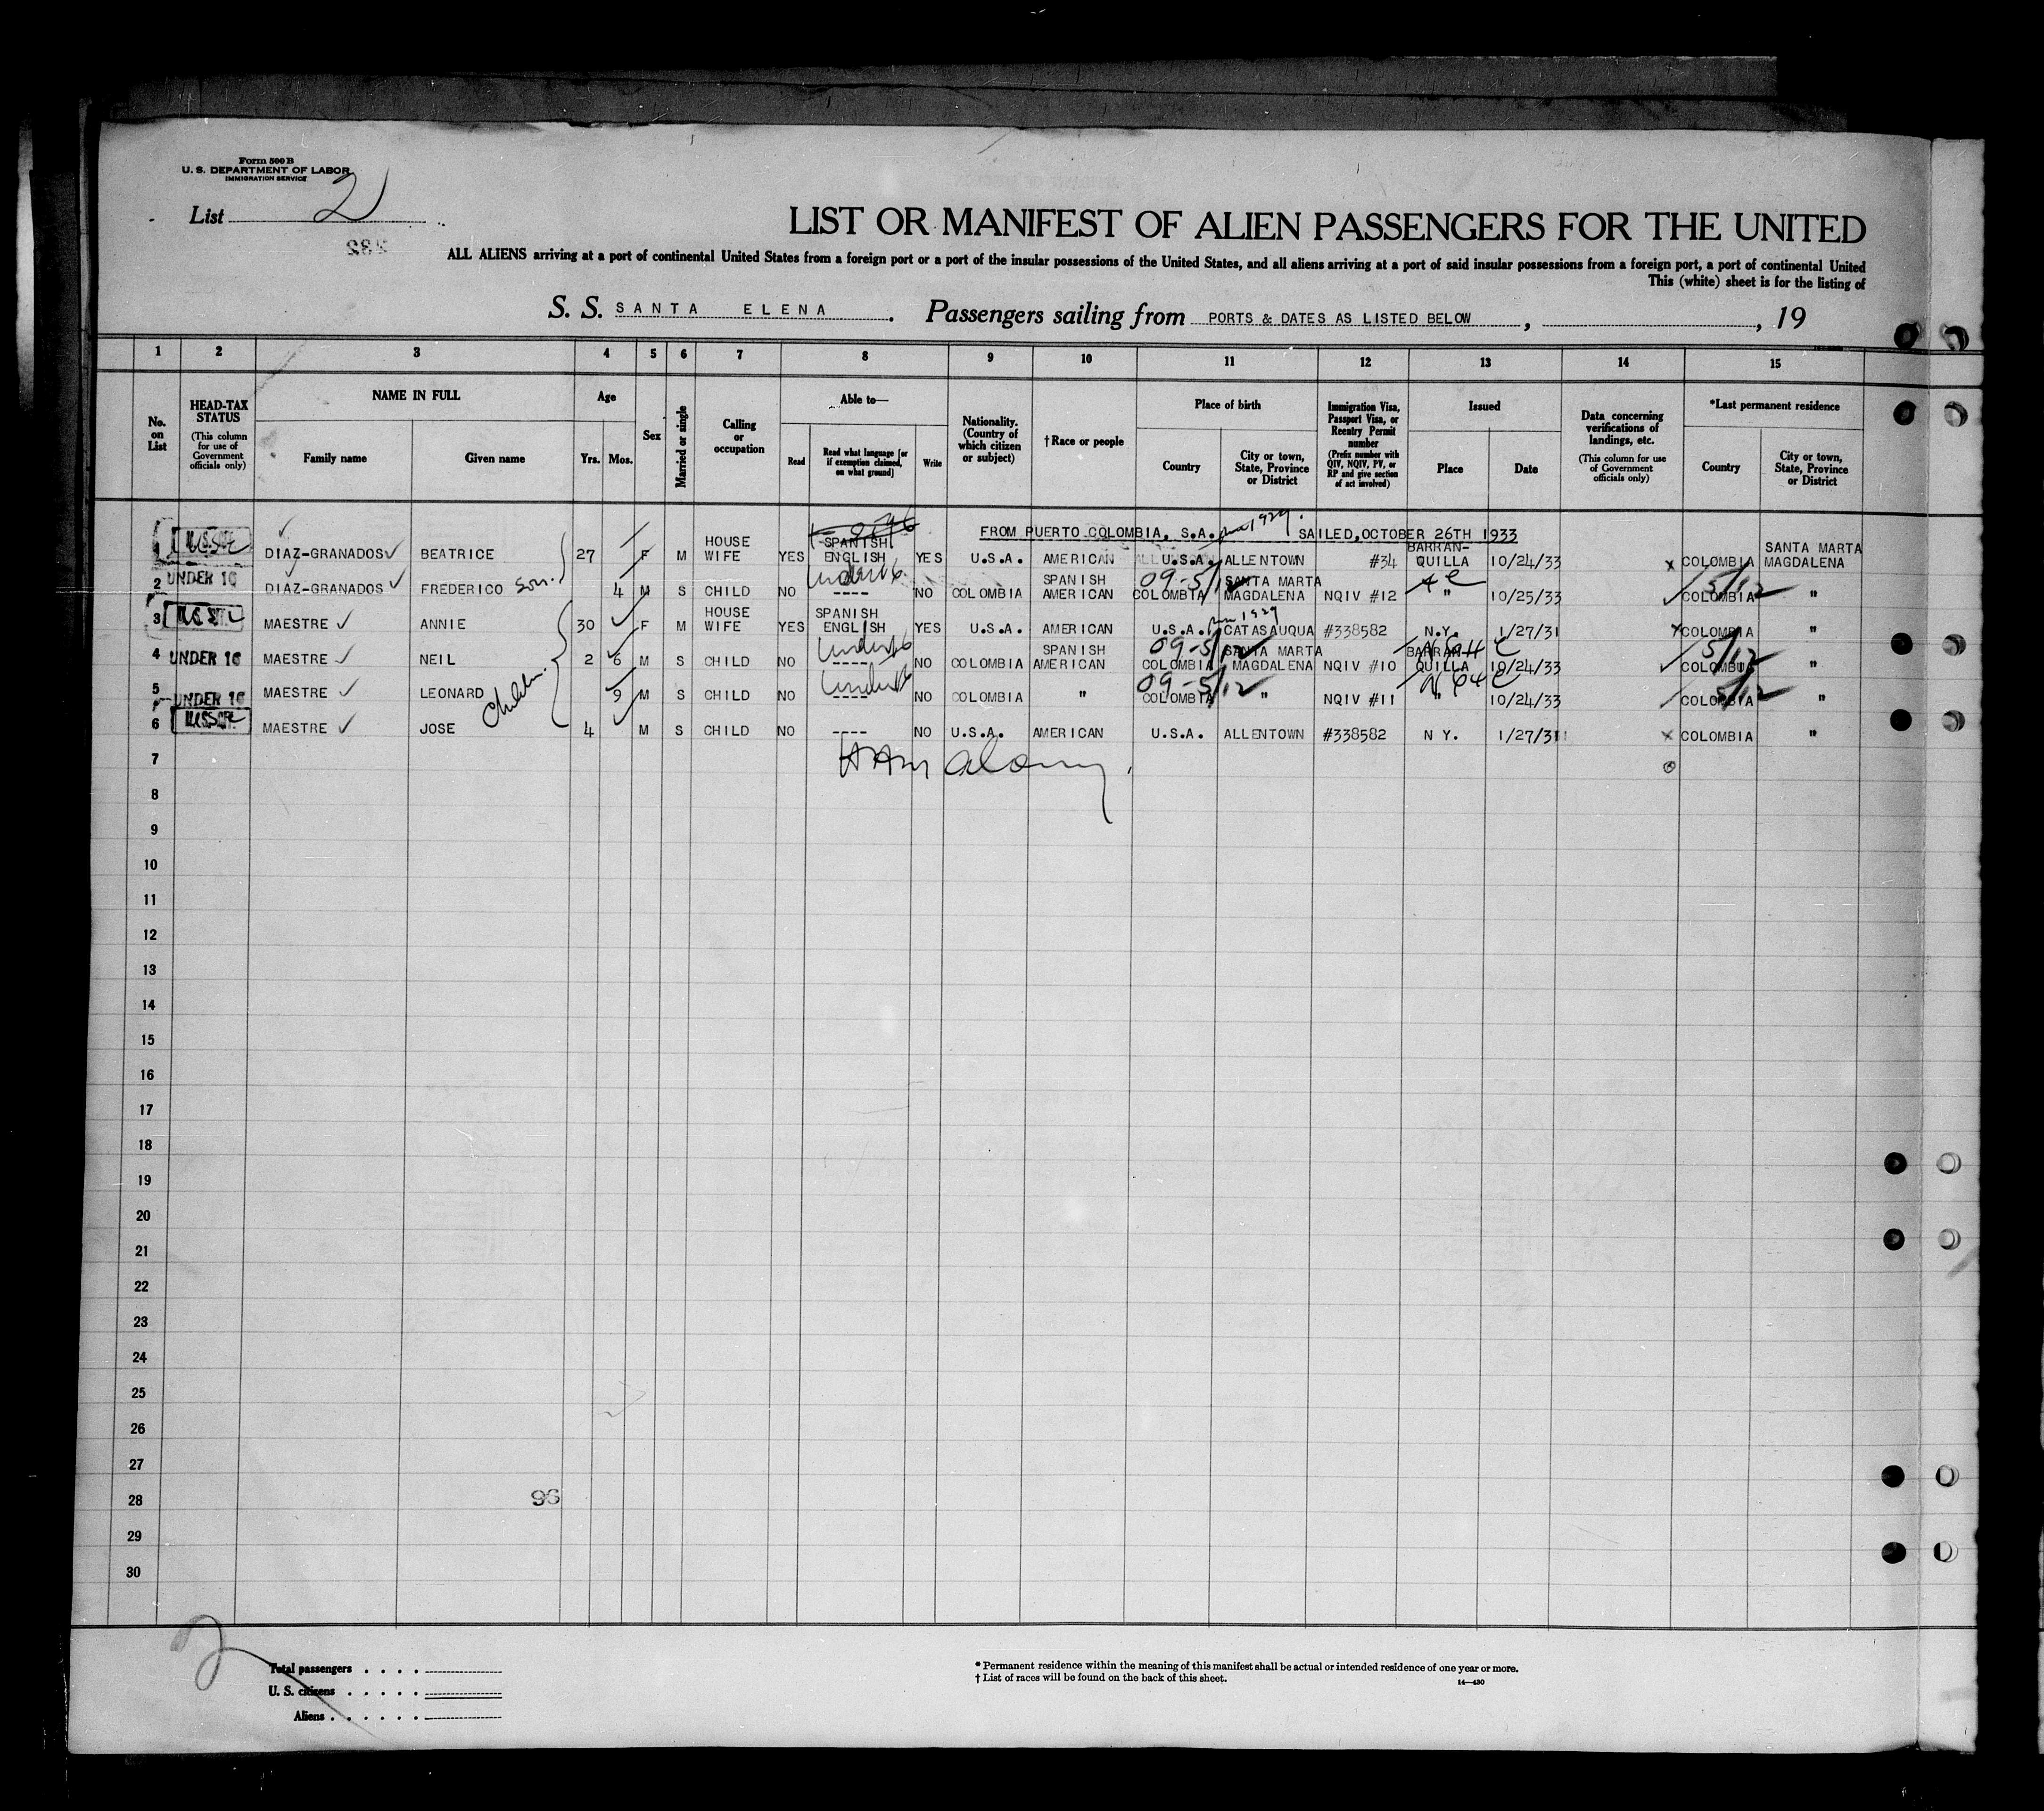 Form 500 B
U. S. DEPARTMENT OF LABOR
IMMIGRATION SERVICE
List 2
LIST OR MANIFEST OF ALIEN PASSENGERS FOR THE UNITED
ALL ALIENS arriving at a port of continental United States from a foreign port or a port of the insular possessions of the United States, and all aliens arriving at a port of said insular possessions from a foreign port, a port of continental United
This (white) sheet is for the listing of
S. S. SANTA ELENA . Passengers sailing from PORTS & DATES AS LISTED BELOW , , 19
1 2 3 4 5 6 7 8 9 10 11 12 13 14 15
No. on List
HEAD-TAX STATUS
(This column for use of Government officials only)
NAME IN FULL
Family name
Given name
Age
Yrs. Mos.
Sex
Married or single
Calling or occupation
Able to—
Read
Read what language [or if exemption claimed, on what ground]
Write
Nationality. (Country of which citizen or subject)
† Race or people
Place of birth
Country
City or town, State, Province or District
Immigration Visa, Passport Visa, or Reentry Permit number
(Prefix number with QIV, NQIV, PV, or RP and give section of act involved)
Issued
Place
Date
Data concerning verifications of landings, etc.
(This column for use of Government officials only)
*Last permanent residence
Country
City or town, State, Province or District
FROM PUERTO COLOMBIA, S.A. SAILED, OCTOBER 26TH 1933
1 DIAZ-GRANADOS BEATRICE 27 F M HOUSE WIFE YES SPANISH ENGLISH YES U.S.A. AMERICAN U.S.A. ALLENTOWN #34 BARRAN-QUILLA 10/24/33 x COLOMBIA SANTA MARTA MAGDALENA
2 UNDER 16 DIAZ-GRANADOS FREDERICO son. 4 M S CHILD NO ---- NO COLOMBIA SPANISH AMERICAN 09-5/12 COLOMBIA SANTA MARTA MAGDALENA NQIV #12 " 10/25/33 5/12 COLOMBIA "
3 MAESTRE ANNIE 30 F M HOUSE WIFE YES SPANISH ENGLISH YES U.S.A. AMERICAN U.S.A. CATASAUQUA #338582 N.Y. 1/27/31 x COLOMBIA "
4 UNDER 16 MAESTRE NEIL 2 6 M S CHILD NO ---- NO COLOMBIA SPANISH AMERICAN 09-5/12 COLOMBIA SANTA MARTA MAGDALENA NQIV #10 BARRAN-QUILLA 10/24/33 5/12 COLOMBIA "
5 UNDER 16 MAESTRE LEONARD 9 M S CHILD NO ---- NO COLOMBIA " 09-5/12 COLOMBIA " NQIV #11 " 10/24/33 5/12 COLOMBIA "
6 MAESTRE JOSE 4 M S CHILD NO ---- NO U.S.A. AMERICAN U.S.A. ALLENTOWN #338582 N Y. 1/27/31 x COLOMBIA "
7
8
9
10
11
12
13
14
15
16
17
18
19
20
21
22
23
24
25
26
27
28
96
29
30
2
Total passengers . . . .
U. S. citizens . . . . .
Aliens . . . . . .
* Permanent residence within the meaning of this manifest shall be actual or intended residence of one year or more.
† List of races will be found on the back of this sheet.
14—430